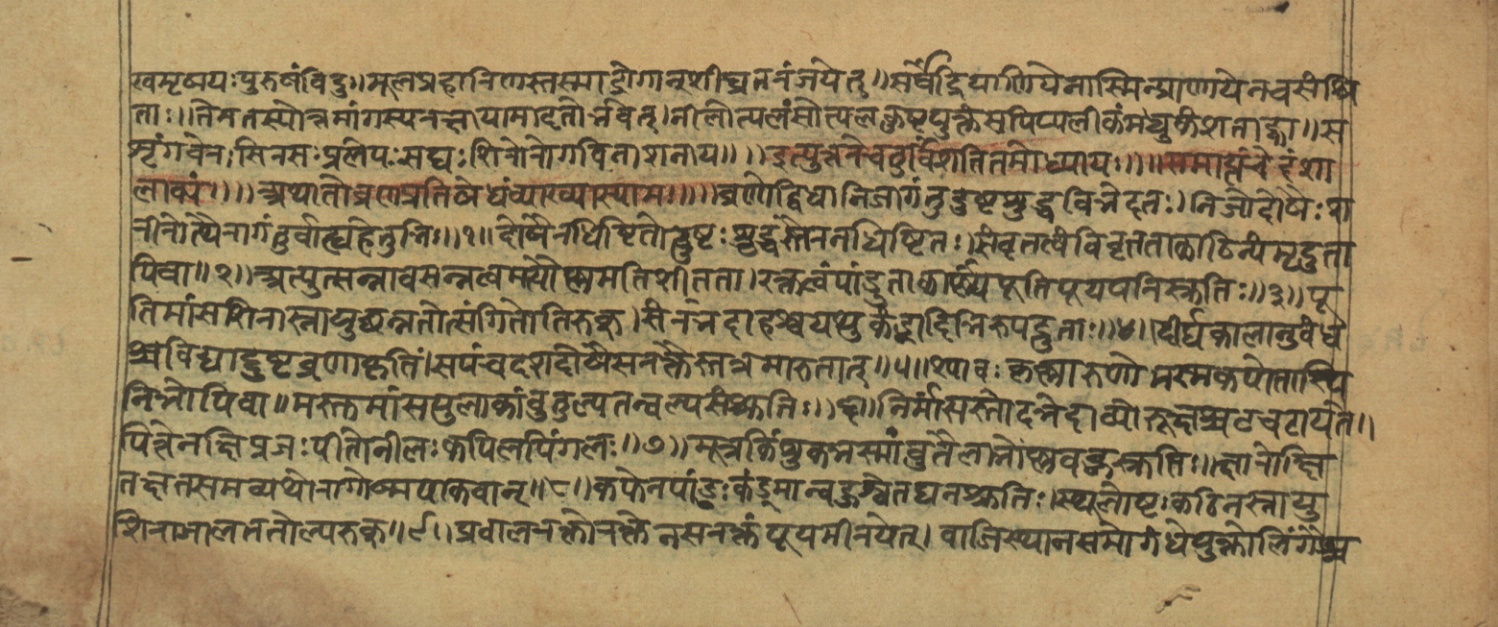 खमृषयःपुरुषंविदुः॥मूलप्रहारिणस्तस्माद्रोगान्शीघ्रतरंजयेत्॥सर्वेंद्रियाणियेनास्मिन्प्राणायेनचसंश्रि
ताः॥तेनतस्योत्तमांगस्यरक्षायामादृतोभवेत्।नीलोत्पलंसोत्पलकुष्टयुक्तंसपिप्पलीकंमधुकंशताह्वा॥स
शृंगवेरःसिरसःप्रलेपःसद्यःशिरोरोगविनाशनाय॥॥इत्युत्तरेचतुर्विंशतितमोध्यायः॥॥समाप्तंचेदंशा
लाक्यं॥॥अथातोव्रणप्रतिषेधंव्याख्यास्यामः॥॥व्रणोद्विधानिजागंतुदुष्टशुद्धविभेदतः।निजोदोषैःश
रीरोत्थैरागंतुर्बाह्यहेतुभिः॥१॥दोषैरधिष्टितोदुष्टःशुद्धस्तैरनधिष्टितः।संवृतत्वंविवृतताकाठिन्यंमृदुता
पिवा॥२॥अत्युत्सन्नावसन्नत्वमत्यौष्ण्यमतिशीतता।रक्तत्वंपांडुताकार्ष्ण्यंपूतिपूयपरिस्रुतिः॥३॥पू
तिमांससिरास्नायुछन्नतोत्संगितातिरुक्।संरंभदाहश्वयथुकंड्वादिभिरुपद्रुताः॥४॥दीर्घकालानुबंधं
श्चविद्याद्दुष्टव्रणाकृतिं।सपंचदशदोषैसरक्तैस्तत्रमारुतात्॥५॥श्यावःकृष्णारुणोभस्मकपोतास्थि
निभोपिवा॥मस्तमांसपुलाकांबुतुल्यतन्वल्पसंस्रुतिः॥६॥निर्मांसस्तोदभेदाढ्योरूक्षश्चटचटायते॥
पित्तेनक्षिप्रजःपीतोनीलःकपिलपिंगलः॥७॥मूत्रकिंशुकभस्मांबुतैलाभोष्णबहुस्रुतिः॥क्षारोक्षि
तक्षतसमव्यथोरागोष्मपाकवान्॥८॥कफेनपांडुःकंडूमान्बहुश्वेतघनस्रुतिः।स्थूलोष्टःकठिनस्नायु
शिराजालततोल्परुक्॥९॥प्रवालरक्तोरक्तेनसरक्तंपूयमीरयेत्।वाजिस्थानसमोगंधेयुक्तोलिंगैश्च